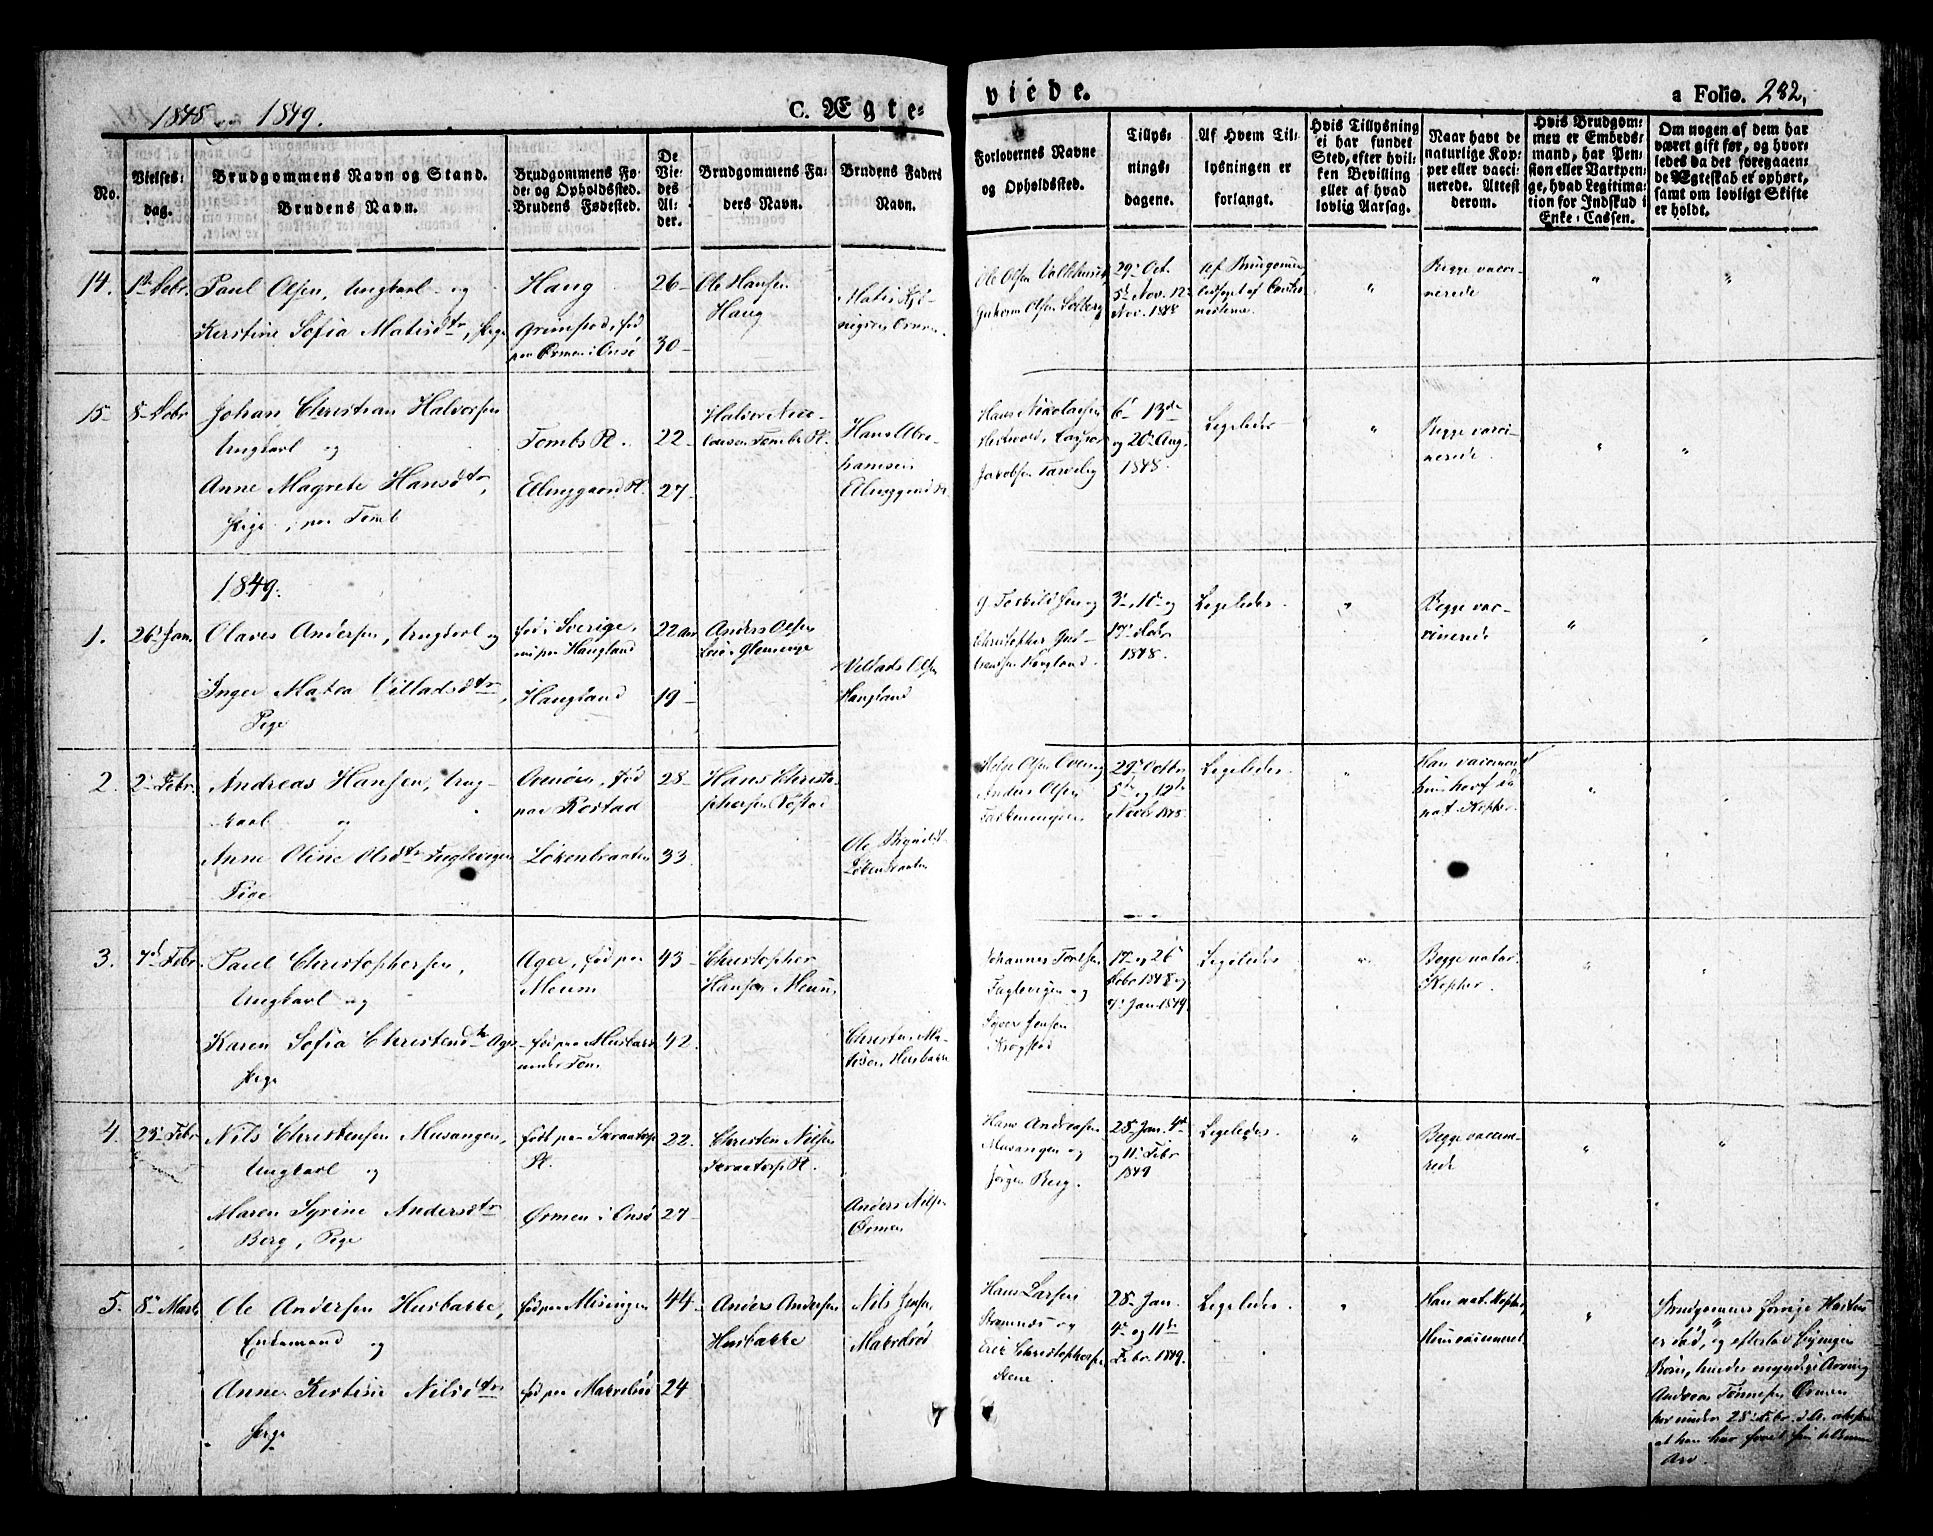 1848 og 1849.
C. Ægte-
viede.
a Folio. 282,
No.
Vielses-
dag.
Brudgommens Navn og Stand.
Brudens Navn.
Brudgommens Fø-
de- og Opholdssted.
Brudens Fødested.
De
Vie-
des
Al-
der.
Brudgommens Fa-
ders Navn.
Brudens Faders
Navn.
Forlovernes Navne
og Opholdssted.
Tillys-
nings-
dagene.
Af Hvem Til-
lysningen er
forlangt.
Hvis Tillysning
ei har fundet
Sted, efter hvil-
ken Bevilling
eller af hvad
lovlig Aarsag.
Naar havt de
naturlige Kop-
per eller vacci-
nerede. Attest
derom.
Hvis Brudgom-
men er Embeds-
mand, har Pen-
sion eller Vartpen-
ge, hvad Legitima-
tion for Indskud i
Enke-Cassen.
Om nogen af dem har
været gift før, og hvor-
ledes da det foregaaen-
de Ægteskab er ophørt,
samt om lovligt Skifte
er holdt.
14. 1 Debr. Paul Olsen, Ungkarl og
Kerstine Sofia Matisdtr, Pige
Haug
Grimstad, fød
paa Ørmen i Onsø
26
30
Ole Hansen
Haug
Ole Olsen
29 Oct.
5 Nov. 12
Nov. 1848
af Brudgommen
ledsaget af
"
Begge vacci-
nerede
"
"
15 8 Debr Johan Christian Halvorsen
Ungkarl og
Anne Magrete Hansdtr,
Pige, paa Tomb
Tombs Pl.
Elinggaard Pl.
22
27
Halvor Nico-
laisen Tombs Pl.
Hans Abra-
hamsen
Elinggaard Pl
Hans Nikolaisen
6 13de
og 20 Aug.
1848
Ligeledes
"
Begge vacci-
nerede.
"
"
1849.
1. 26 Jan. Olaves Andersen, Ungkarl og
Inger Matea Villadsdtr,
Pige
fød i Sverige,
nu paa Haugland
Haugland
22 aar
19
Anders Olsen
Villads Olsen
Haugland
3 10 og
17 Debr
1848.
Ligeledes.
"
Begge vac-
cinerede
"
"
2. 2 Febr. Andreas Hansen, Ung-
karl og
Anne Oline Olsdtr Fuglevigen
Pige
fød
paa Rostad
Løkenbraaten
28
33
Hans Christo-
phersen Rostad
Ole
Løkenbraaten
Anders Olsen
29 Octbr
5te og 12te
Novbr 1848.
Ligeledes.
"
Han vaccineret
hun havt de
nat. Kopper.
"
"
3. 7 Febr. Paul Christophersen,
Ungkarl og
Karen Sofia Christensdtr Ager
Pige
Ager, fød paa
Meum
fød paa Husbakke
under Tom.
43
42
Christopher
Hansen Meum
Christen Ma-
tisen Husbakke
Johannes
Fuglevigen og
Syver Jensen
Krogstad
17 og 26
Debr 1848 og
7 Jan. 1849.
Ligeledes
"
Begge natur.
Kopper.
"
"
4. 23 Febr Nils Christensen Musangen,
Ungkarl og
Maren Syrine Andersdtr
Berg, Pige
født paa Skraatorp
Pl.
Ørmen i Onsø
22
27
Christen Nilsen
Skraatorp Pl.
Anders Nilsen
Ørmen
Hans Andreasen
Musangen og
Jørgen Berg.
28 Jan. 4de
og 11 Febr
1849
Ligeledes.
"
Begge vaccine-
rede
"
"
5. 8 Marts Ole Andersen Husbakke,
Enkemand og
Anne Kirstine Nilsdtr
Pige
fød paa Misingen
fød paa Makrelrød
44
24
Anders Andersen
Husbakke
Nils Jensen
Makrelrød
Hans Larsen
og
Eric Christophersen
28 Jan.
4 og 11te
Febr. 1849.
Ligeledes.
"
Han nat. Kopper,
Hun vaccineret
"
Brudgommens forrige Hustru
er død, og efterlod
Børn, hendes myndige Arving
Andreas Tønnesen Ørmen
har under 28 Febr. d. A.
at han har faaet sin
Arv.